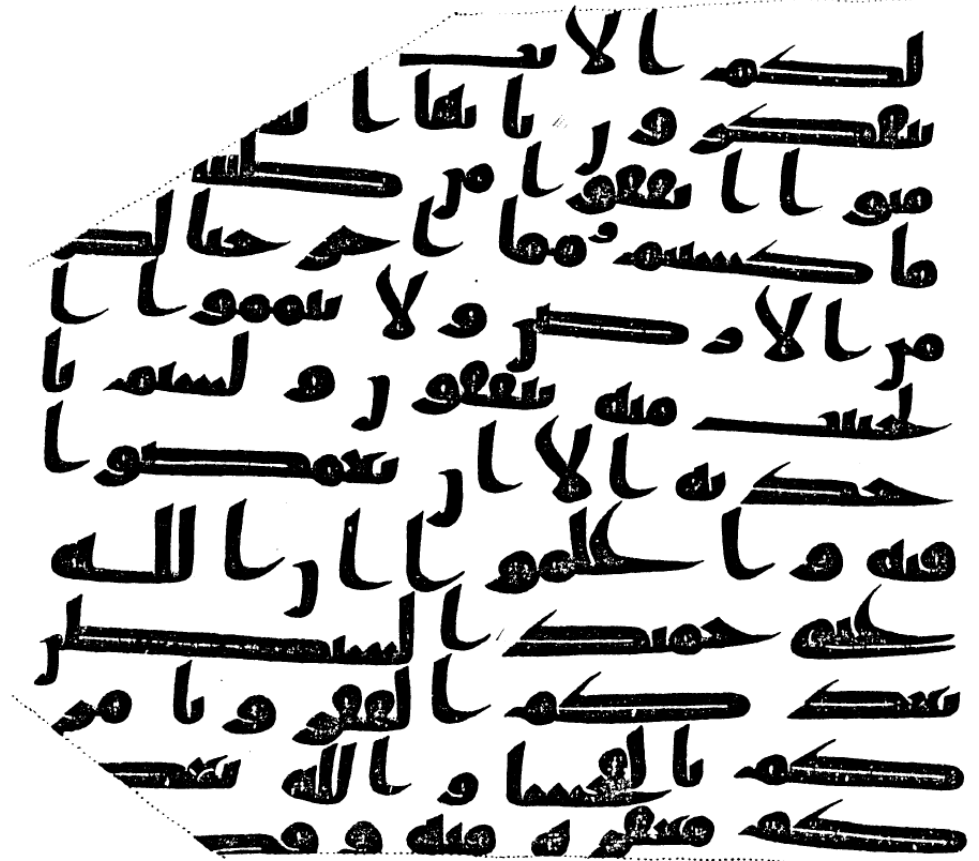 لكم الايت
تفكرون يايها الذ
منوا انفقوا من طيبت
ما كسبتم ومما اخرجنا لكم
من الارض ولا تيمموا ا
لخبيث منه تنفقون ولستم با
خذيه الا ان تغمضوا
فيه واعلموا ان الله
غني حميد الشيطن
يعدكم الفقر ويامر
كم بالفحشا والله يعد
كم مغفرة منه وفضـ